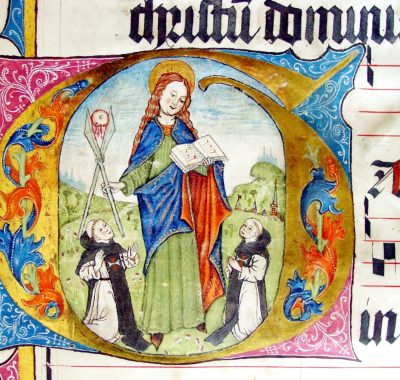 christū dominu
in